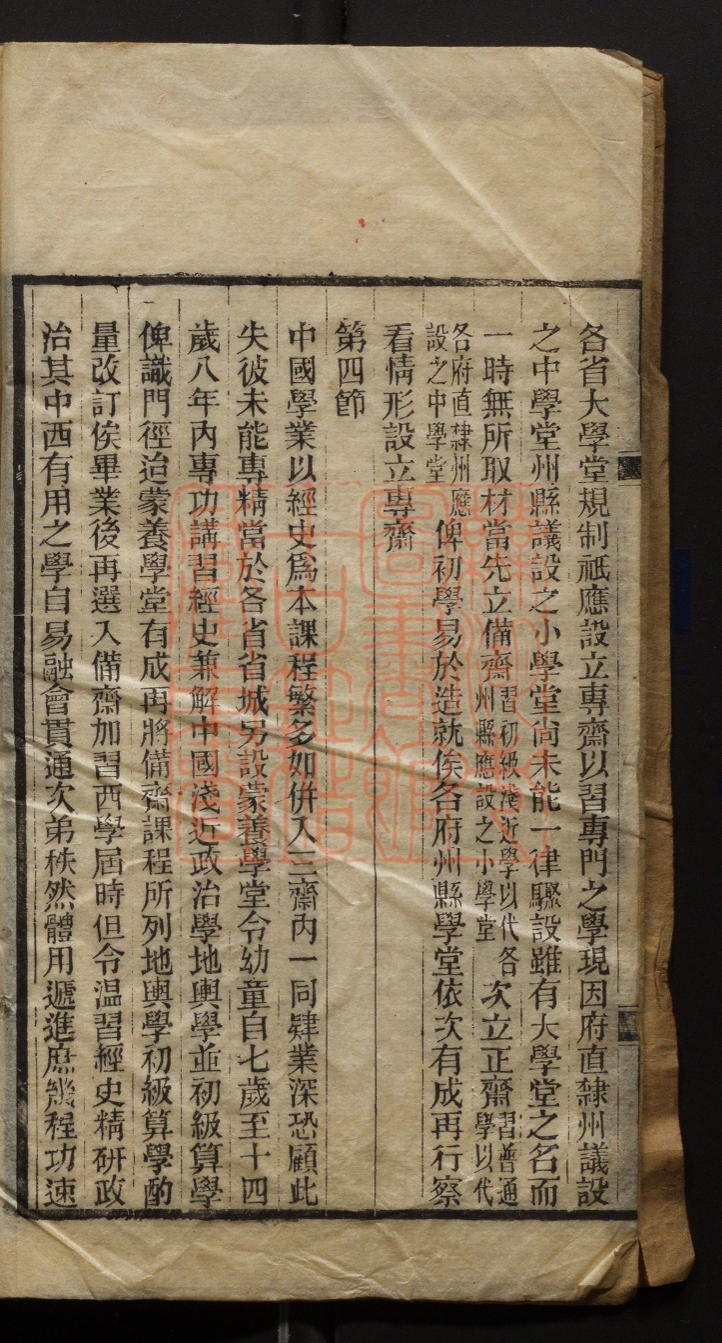 各省大學堂規制祇應設立專齋以習專門之學現因府直隸州議設
之中學堂州縣議設之小學堂尚未能一律驟設雖有大學堂之名而
一時無所取材當先立備齋習初級淺近學以代各州縣應設之小學堂次立正齋習普通學以代
各府直隸州應設之中學堂俾初學易於造就俟各府州縣學堂依次有成再行察
看情形設立專齋
第四節
中國學業以經史爲本課程繁多如併入三齋內一同肄業深恐顧此
失彼未能專精當於各省省城另設蒙養學堂令幼童自七歲至十四
歲八年內專功講習經史兼解中國淺近政治學地輿學並初級算學
俾識門徑迨蒙養學堂有成再將備齋課程所列地輿學初級算學酌
量改訂俟畢業後再選入備齋加習西學屆時但令温習經史精研政
治其中西有用之學自易融會貫通次弟秩然體用遞進庶幾程功速